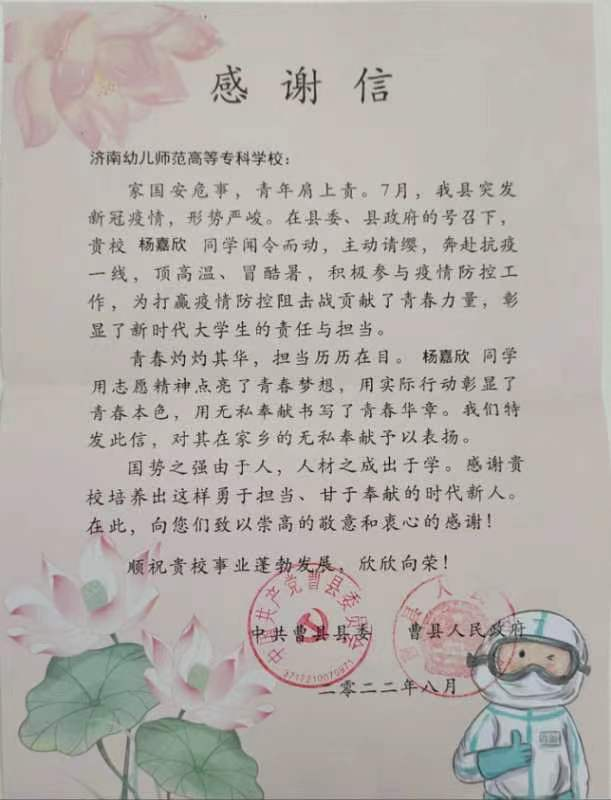 感谢信
济南幼儿师范高等专科学校：
家国安危事，青年肩上责。7月，我县突发
新冠疫情，形势严峻。在县委、县政府的号召下，
贵校 杨嘉欣 同学闻令而动，主动请缨，奔赴抗疫
一线，顶高温、冒酷暑，积极参与疫情防控工
作，为打赢疫情防控阻击战贡献了青春力量，彰
显了新时代大学生的责任与担当。
青春灼灼其华，担当历历在目。 杨嘉欣 同学
用志愿精神点亮了青春梦想，用实际行动彰显了
青春本色，用无私奉献书写了青春华章。我们特
发此信，对其在家乡的无私奉献予以表扬。
国势之强由于人，人材之成出于学。感谢贵
校培养出这样勇于担当、甘于奉献的时代新人。
在此，向您们致以崇高的敬意和衷心的感谢！
顺祝贵校事业蓬勃发展，欣欣向荣！
中国共产党曹县委员会
中共曹县县委 曹县人民政府
二零二二年八月